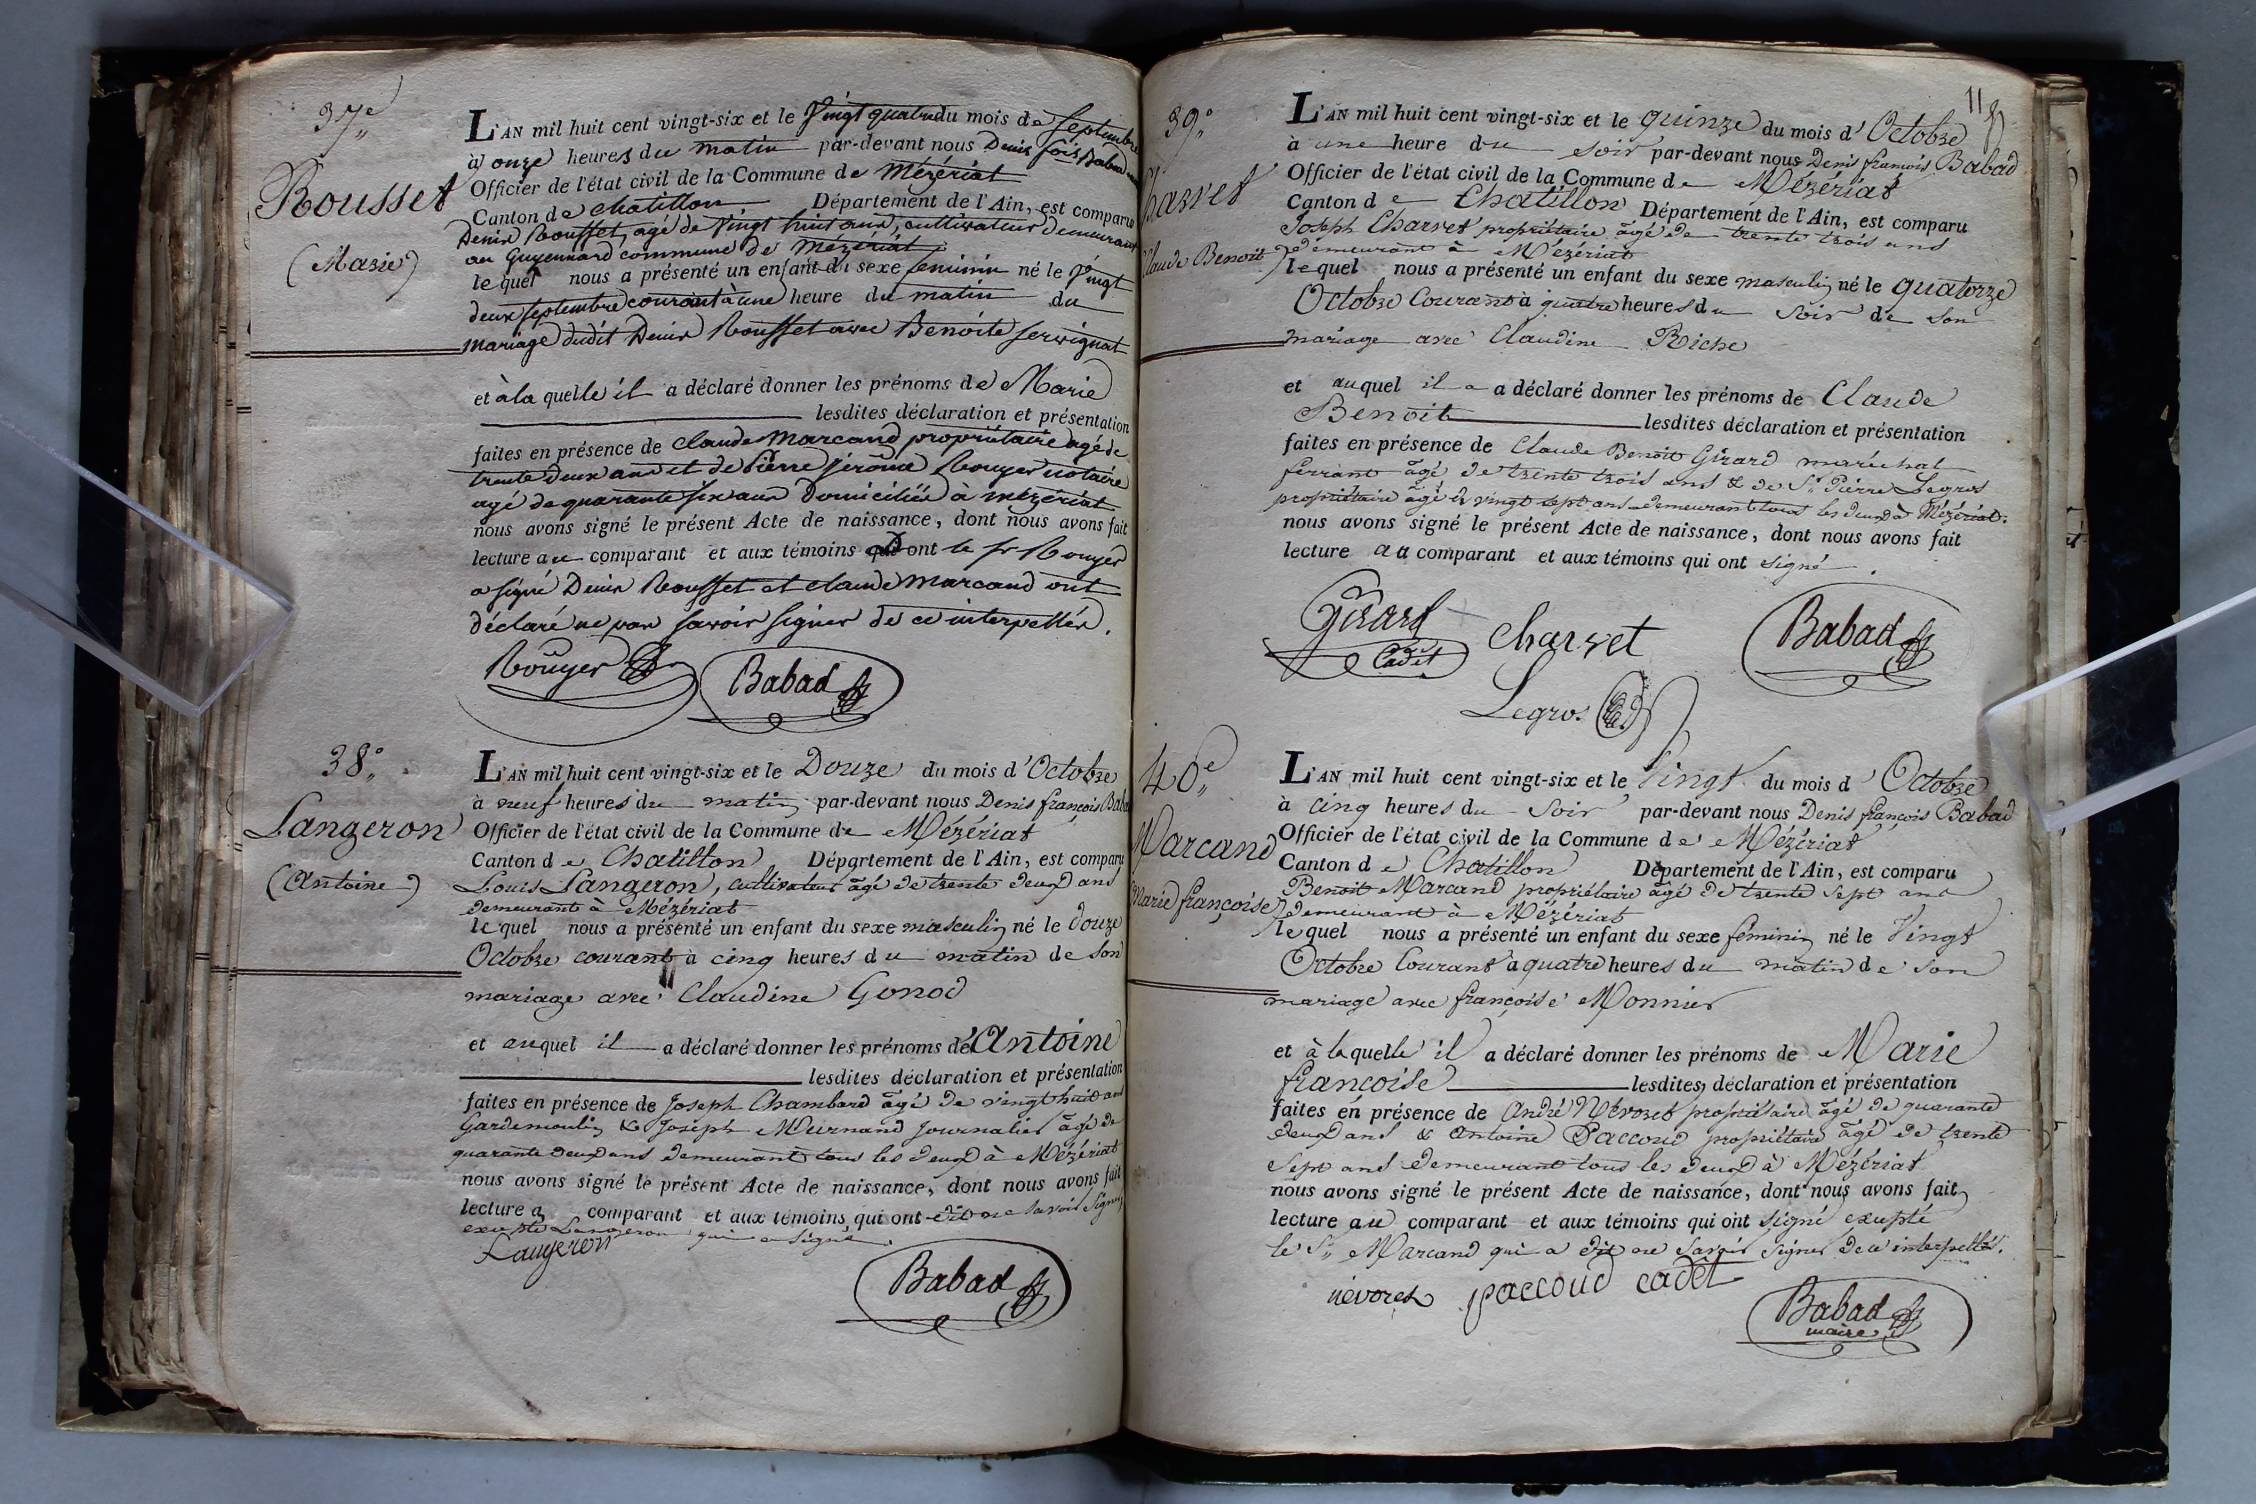 37e
Rousset
(Marie)
L'AN mil huit cent vingt-six et le Vingt quatre du mois de Septembre
à onze heures du matin par-devant nous Denis fois Babad
Officier de l'état civil de la Commune de Mézériat
Canton de chatillon Département de l'Ain, est comparu
Denis Rousset, agé de Vingt huit ans, cultivateur demeurant
au Guyennard commune de Mézériat
lequel nous a présenté un enfant du sexe feminin né le Vingt
deux septembre courant à une heure du matin du
mariage dudit Denis Rousset avec Benoite servignat
et à la quelle il a déclaré donner les prénoms de Marie
lesdites déclaration et présentation
faites en présence de claude Marcand propriétaire agé de
trente deux ans et de Pierre jérôme Rouyer notaire
agé de quarante six ans domiciliés à mézériat
nous avons signé le présent Acte de naissance, dont nous avons fait
lecture au comparant et aux témoins dont le sr Rouyer
a signé Denis Rousset et claude Marcand ont
déclaré ne pas savoir signer de ce interpellés.
Rouyer Babad
38°
Langeron
(Antoine)
L'AN mil huit cent vingt-six et le Douze du mois d'Octobre
à neuf heures du matin par-devant nous Denis françois Babad
Officier de l'état civil de la Commune de Mézériat
Canton de Chatillon Département de l'Ain, est comparu
Louis Langeron, cultivateur âgé de trente deux ans
demeurant à Mézériat
lequel nous a présenté un enfant du sexe masculin né le douze
Octobre courant à cinq heures du matin de son
mariage avec Claudine Gonod
et auquel il a déclaré donner les prénoms de Antoine
lesdites déclaration et présentation
faites en présence de Joseph Chambard âgé de vingt huit ans
Gardemoulin & Joseph Murnand journalier âgé de
quarante deux ans demeurant tous les deux à Mézériat
nous avons signé le présent Acte de naissance, dont nous avons fait
lecture a comparant et aux témoins qui ont dit ne savoir signer,
excepté Langeron qui a signé.
Langeron
Babad
11
39°
Charvet
Claude Benoit
L'AN mil huit cent vingt-six et le quinze du mois d'Octobre
à une heure du soir par-devant nous Denis françois Babad
Officier de l'état civil de la Commune de Mézériat
Canton de Chatillon Département de l'Ain, est comparu
Joseph Charvet propriétaire âgé de trente trois ans
demeurant à Mézériat
lequel nous a présenté un enfant du sexe masculin né le quatorze
Octobre Courant à quatre heures du soir de son
mariage avec Claudine Riche
et auquel il a déclaré donner les prénoms de Claude
Benoit lesdites déclaration et présentation
faites en présence de Claude Benoit Girard maréchal
ferrant âgé de trente trois ans & de Sr Pierre Legros
propriétaire âgé de vingt sept ans demeurant tous les deux à Mézériat.
nous avons signé le présent Acte de naissance, dont nous avons fait
lecture au comparant et aux témoins qui ont signé.
Girard Cadet Charvet Babad
Legros
40e
Marcand
Marie françoise
L'AN mil huit cent vingt-six et le Vingt du mois d'Octobre
à cinq heures du Soir par-devant nous Denis françois Babad
Officier de l'état civil de la Commune de Mézériat
Canton de Chatillon Département de l'Ain, est comparu
Benoit Marcand propriétaire âgé de trente sept ans
demeurant à Mézériat
lequel nous a présenté un enfant du sexe féminin né le Vingt
Octobre Courant à quatre heures du matin de son
mariage avec françoise Monnier
et à laquelle il a déclaré donner les prénoms de Marie
françoise lesdites déclaration et présentation
faites en présence de André Névoret propriétaire âgé de quarante
deux ans & Antoine Paccoud propriétaire âgé de trente
sept ans demeurant tous les deux à Mézériat
nous avons signé le présent Acte de naissance, dont nous avons fait
lecture au comparant et aux témoins qui ont signé excepté
le Sr Marcand qui a dit ne savoir signer de ce interpellé.
névoret paccoud cadet
Babad
maire